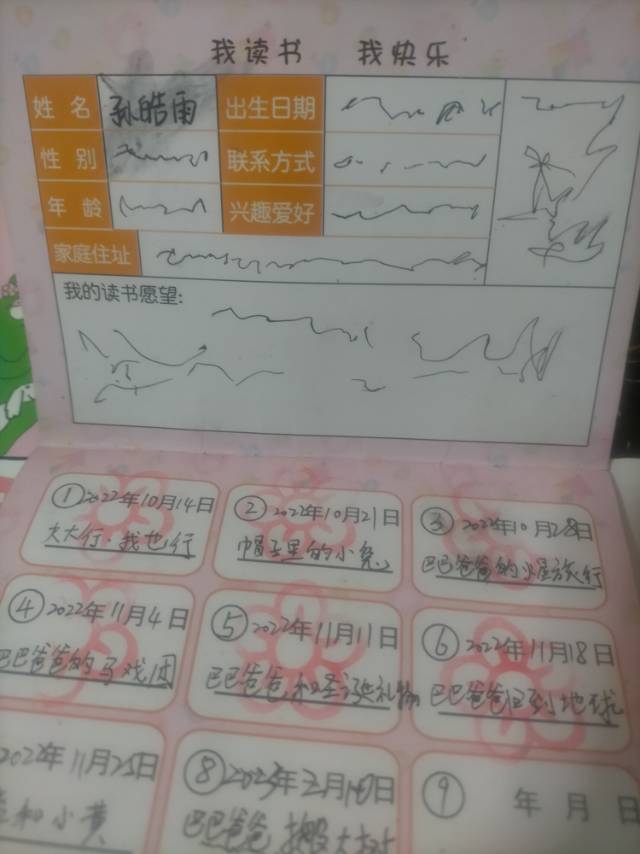 我读书 我快乐
姓名 孙皓雨 出生日期
性别 联系方式
年龄 兴趣爱好
家庭住址
我的读书愿望:
①2022年10月14日
大大行·我也行
②2022年10月21日
帽子里的小兔
③2022年10月28日
巴巴爸爸的火星旅行
④2022年11月4日
巴巴爸爸的马戏团
⑤2022年11月11日
巴巴爸爸和圣诞礼物
⑥2022年11月18日
巴巴爸爸回到地球
2022年11月25日
和小黄
⑧2023年2月10日
巴巴爸爸 大树
⑨ 年 月 日